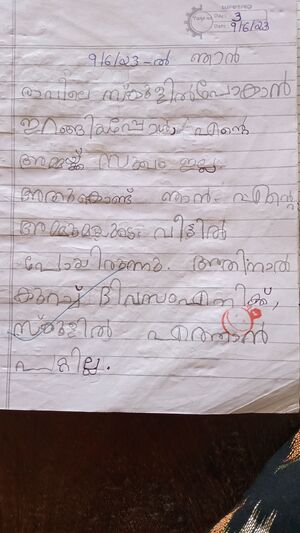 3
9/6/23
9/6/23-ൽ ഞാൻ
രാവിലെ സ്കൂളിൽപോകാൻ
ഇറങ്ങിയപ്പോൾ, എന്റെ
അമ്മയ്ക്ക് സുഖം ഇല്ല.
അതുകൊണ്ട് ഞാൻ എന്റെ
അമ്മുമ്മയുടെ വീട്ടിൽ
പോയിരുന്നു. അതിനാൽ
കുറച്ച് ദിവസം എനിക്ക്,
സ്കൂളിൽ എത്താൻ
പറ്റില്ല.